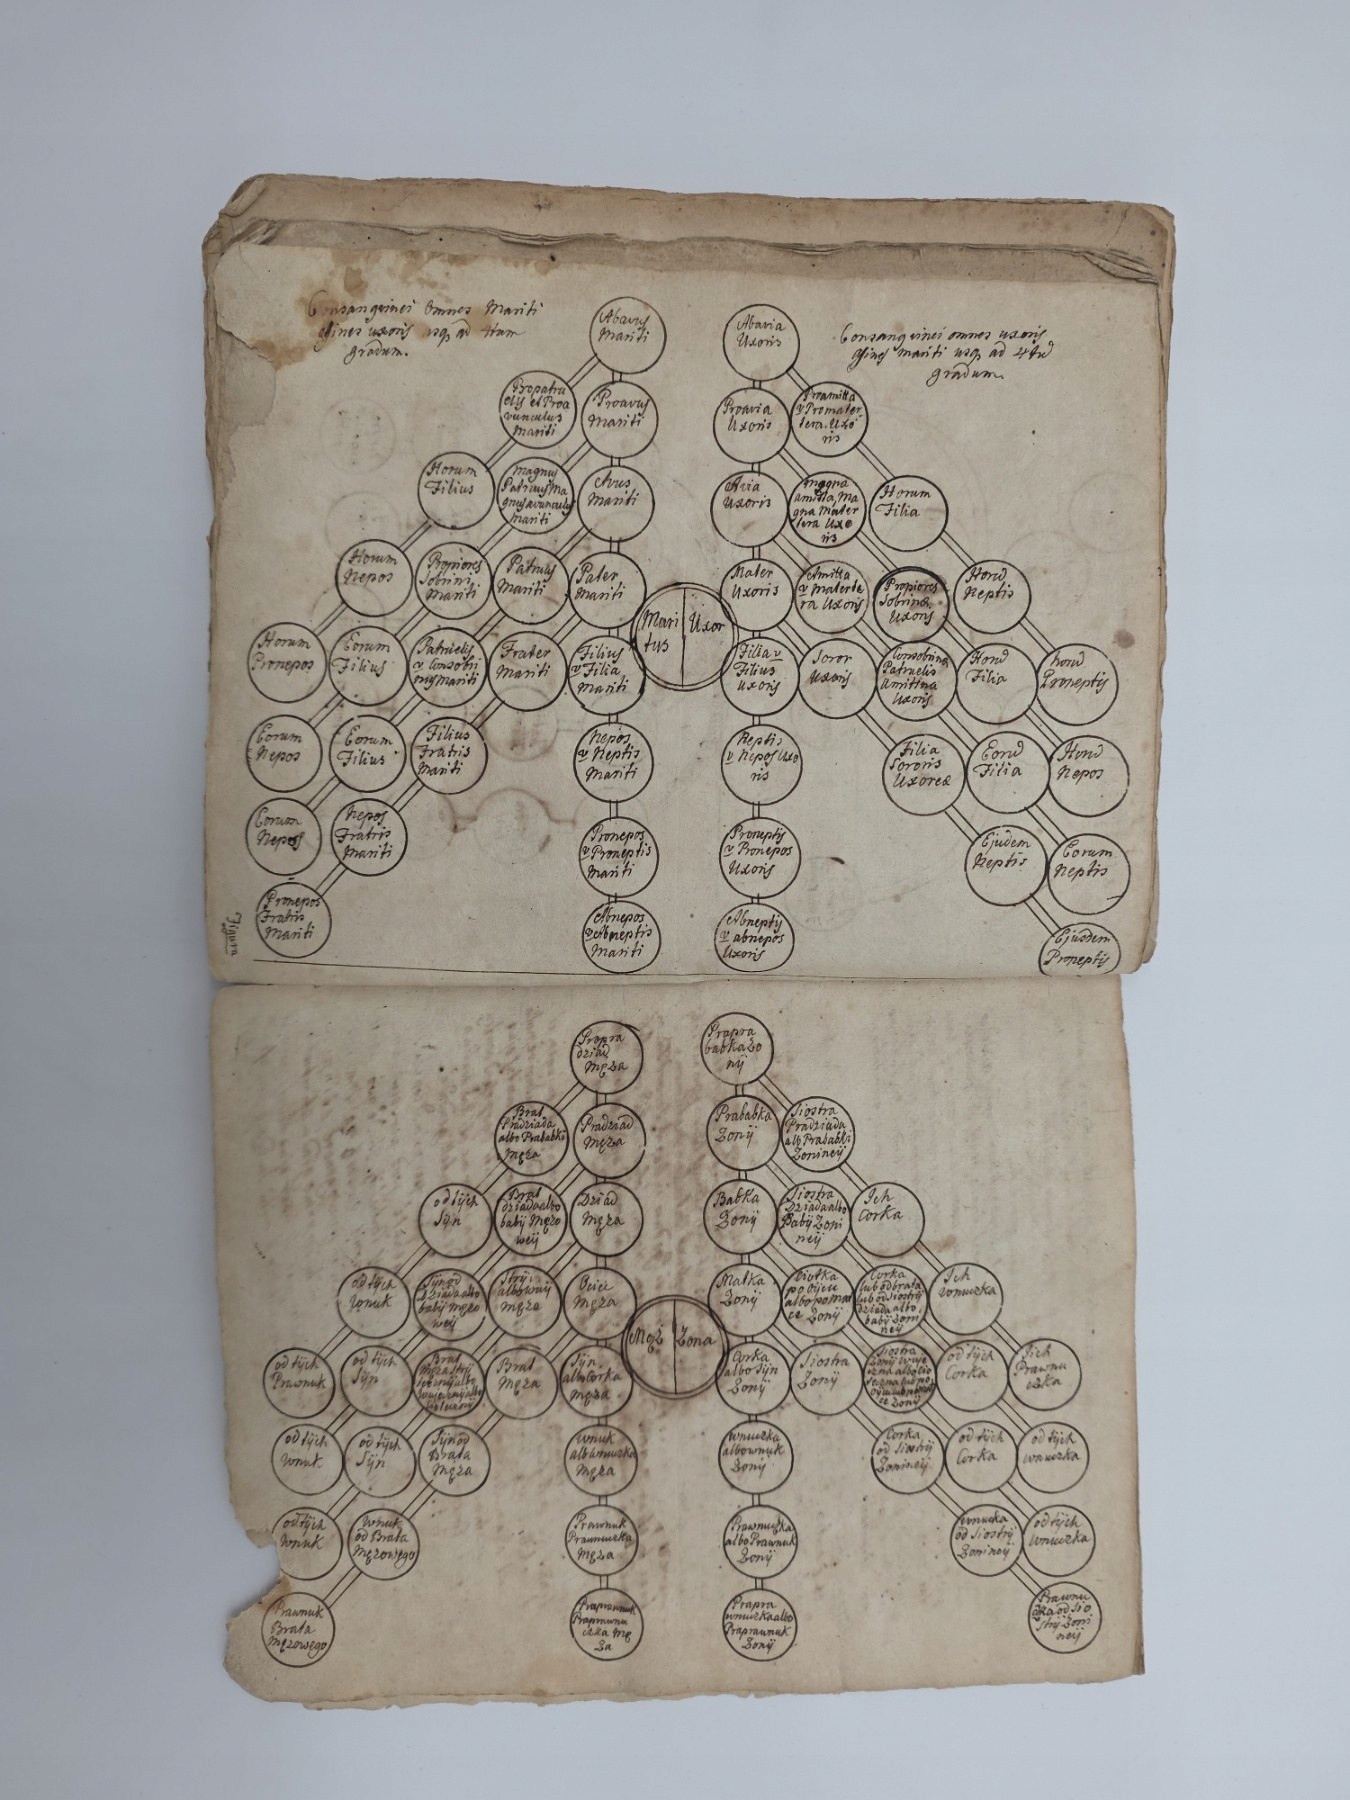 Consanguinei Omnes Mariti
uxoris usq ad
gradum.
Consanguinei omnes uxoris
mariti usq ad 4tu
gradum.
Abavus
Mariti
Abavia
Uxoris
et Proa
vunculus
Mariti
Proavus
Mariti
Proavia
Uxoris
Proamitta
v Promater
tera Uxo
ris
Horum
Filius
Magnus
Patruus Ma
gnus avunculus
Mariti
Avus
Mariti
Avia
Uxoris
Magna
amitta, Ma
gna Mater
tera Uxo
ris
Horum
Filia
Horum
Nepos
Propiores
Sobrini
Mariti
Patruus
Mariti
Pater
Mariti
Mari
tus
Uxor
Mater
Uxoris
Amitta
v Materte
ra Uxoris
Propiores
Sobrinæ
Uxoris
Horu
Neptis
Horum
Pronepos
Eorum
Filius
Patruelis
v Consobri
nus Mariti
Frater
Mariti
Filius
v Filia
Mariti
Filia v
Filius
Uxoris
Soror
Uxoris
Consobrina
Patruelis
Amittina
Uxoris
Horu
Filia
horu
Proneptis
Eorum
Nepos
Eorum
Filius
Filius
Fratris
Mariti
Nepos
v Neptis
Mariti
Neptis
v Nepos Uxo
ris
Filia
Sororis
Uxoreæ
Eoru
Filia
Horu
Nepos
Eorum
Nepos
Nepos
Fratris
Mariti
Pronepos
v Proneptis
Mariti
Proneptis
v Pronepos
Uxoris
Ejusdem
Neptis
Eorum
Neptis
Pronepos
Fratris
Mariti
Abnepos
v Abneptis
Mariti
Abneptis
v abnepos
Uxoris
Ejusdem
Proneptis
Figura
Prapra
dziad
Męża
Prapra
babka Żo
nÿ
Brat
Pradziada
albo Prababki
Męża
Pradziad
Męża
Prababka
Żonÿ
Siostra
Pradziada
alb Prababki
Żoninejÿ
od tÿch
Sÿn
Brat
dziada albo
babÿ Mężo
weÿ
Dziad
Męża
Babka
Żonÿ
Siostra
Dziada albo
Babÿ Żoni
neÿ
Ich
Corka
od tÿch
wnuk
Sÿn od
Dziada albo
babÿ mężo
weÿ
Strÿi
albo wuÿ
Męża
Ociec
Męża
Mąż
Żona
Matka
Żonÿ
Ciotka
po Oÿcu
albo po mat
ce Żonÿ
Corka
lub od brata
lub od Siostrÿ
dziada albo
babÿ Żoni
neÿ
Ich
wnuczka
od tÿch
Prawnuk
od tÿch
Sÿn
Brat
Męża
Brat
Męża
Sÿn
albo Corka
Męża
Corka
albo Sÿn
Żonÿ
Siostra
Żonÿ
Siostra
Żonÿ
od tÿch
Corka
Ich
Prawnu
czka
od tÿch
wnuk
od tÿch
Sÿn
Sÿn od
Brata
Męża
wnuk
albo wnuczka
Męża
wnuczka
albo wnuk
Żonÿ
Corka
od Siostrÿ
Żonineÿ
od tÿch
Corka
od tÿch
wnuczka
od tÿch
wnuk
Wnuk
od Brata
Mężowego
Prawnuk
Prawnuczka
Męża
Prawnuczka
albo Prawnuk
Żonÿ
wnuczka
od Siostrÿ
Żonineÿ
od tÿch
wnuczka
Prawnuk
Brata
Mężowego
Praprawnuk
Praprawnu
czka Mę
ża
Prapra
wnuczka albo
Praprawnuk
Żonÿ
Prawnu
czka od Sio
strÿ Żoni
neÿ